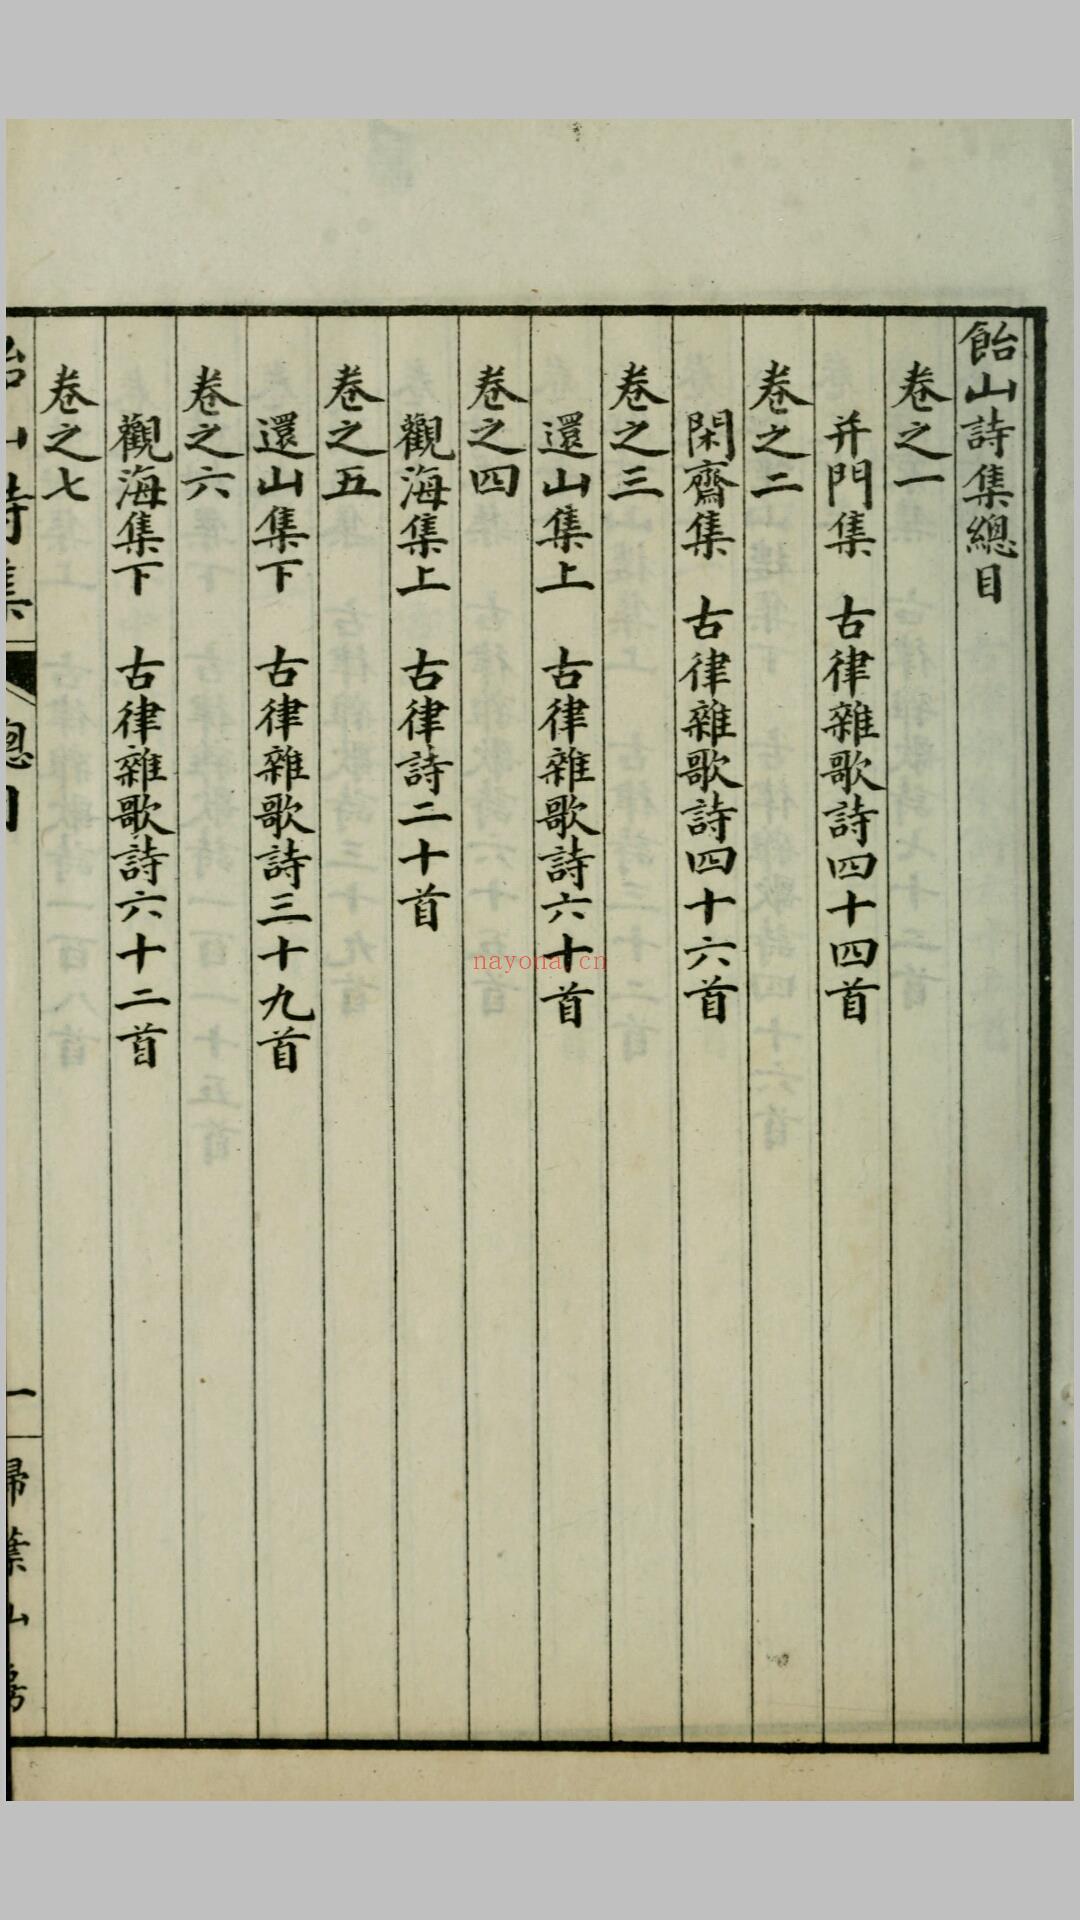 飴山詩集總目
卷之一
并門集　古律雜歌詩四十四首
卷之二
閑齋集　古律雜歌詩四十六首
卷之三
還山集上　古律雜歌詩六十首
卷之四
觀海集上　古律詩二十首
卷之五
還山集下　古律雜歌詩三十九首
卷之六
觀海集下　古律雜歌詩六十二首
卷之七
飴山詩集
總目
一
掃葉山房
nayona.cn